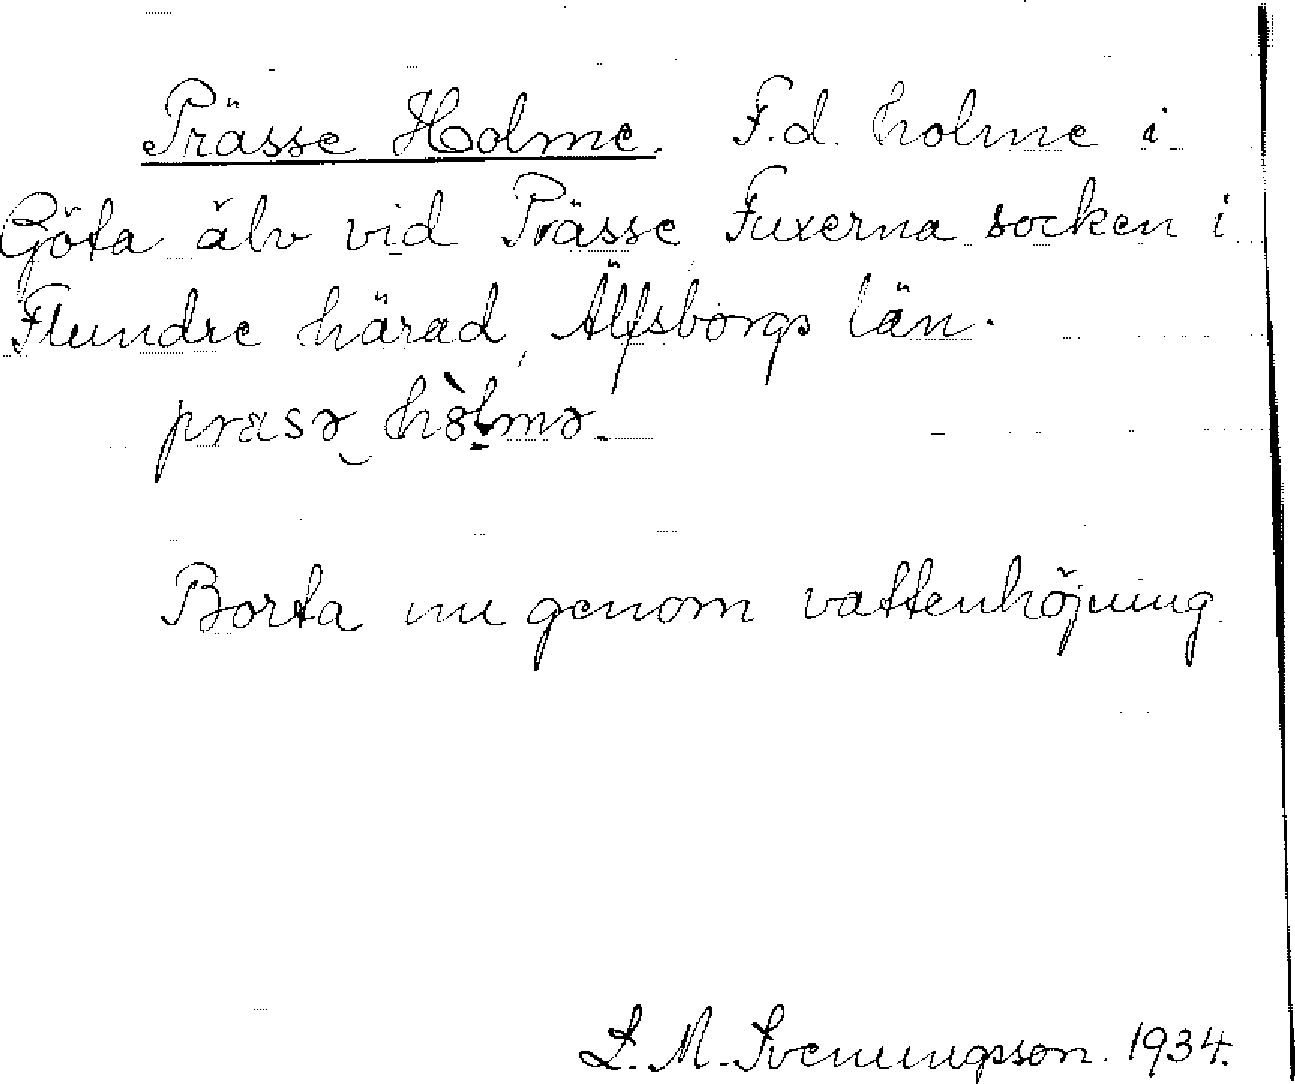 Prässe Holme. F.d. holme i
Göta älv vid Prässe Fuxerna socken i
Flundre härad, Älfsborgs län.
præsə hòlmə.
Borta nu genom vattenhöjning.
L. M. Svenungsson. 1934.